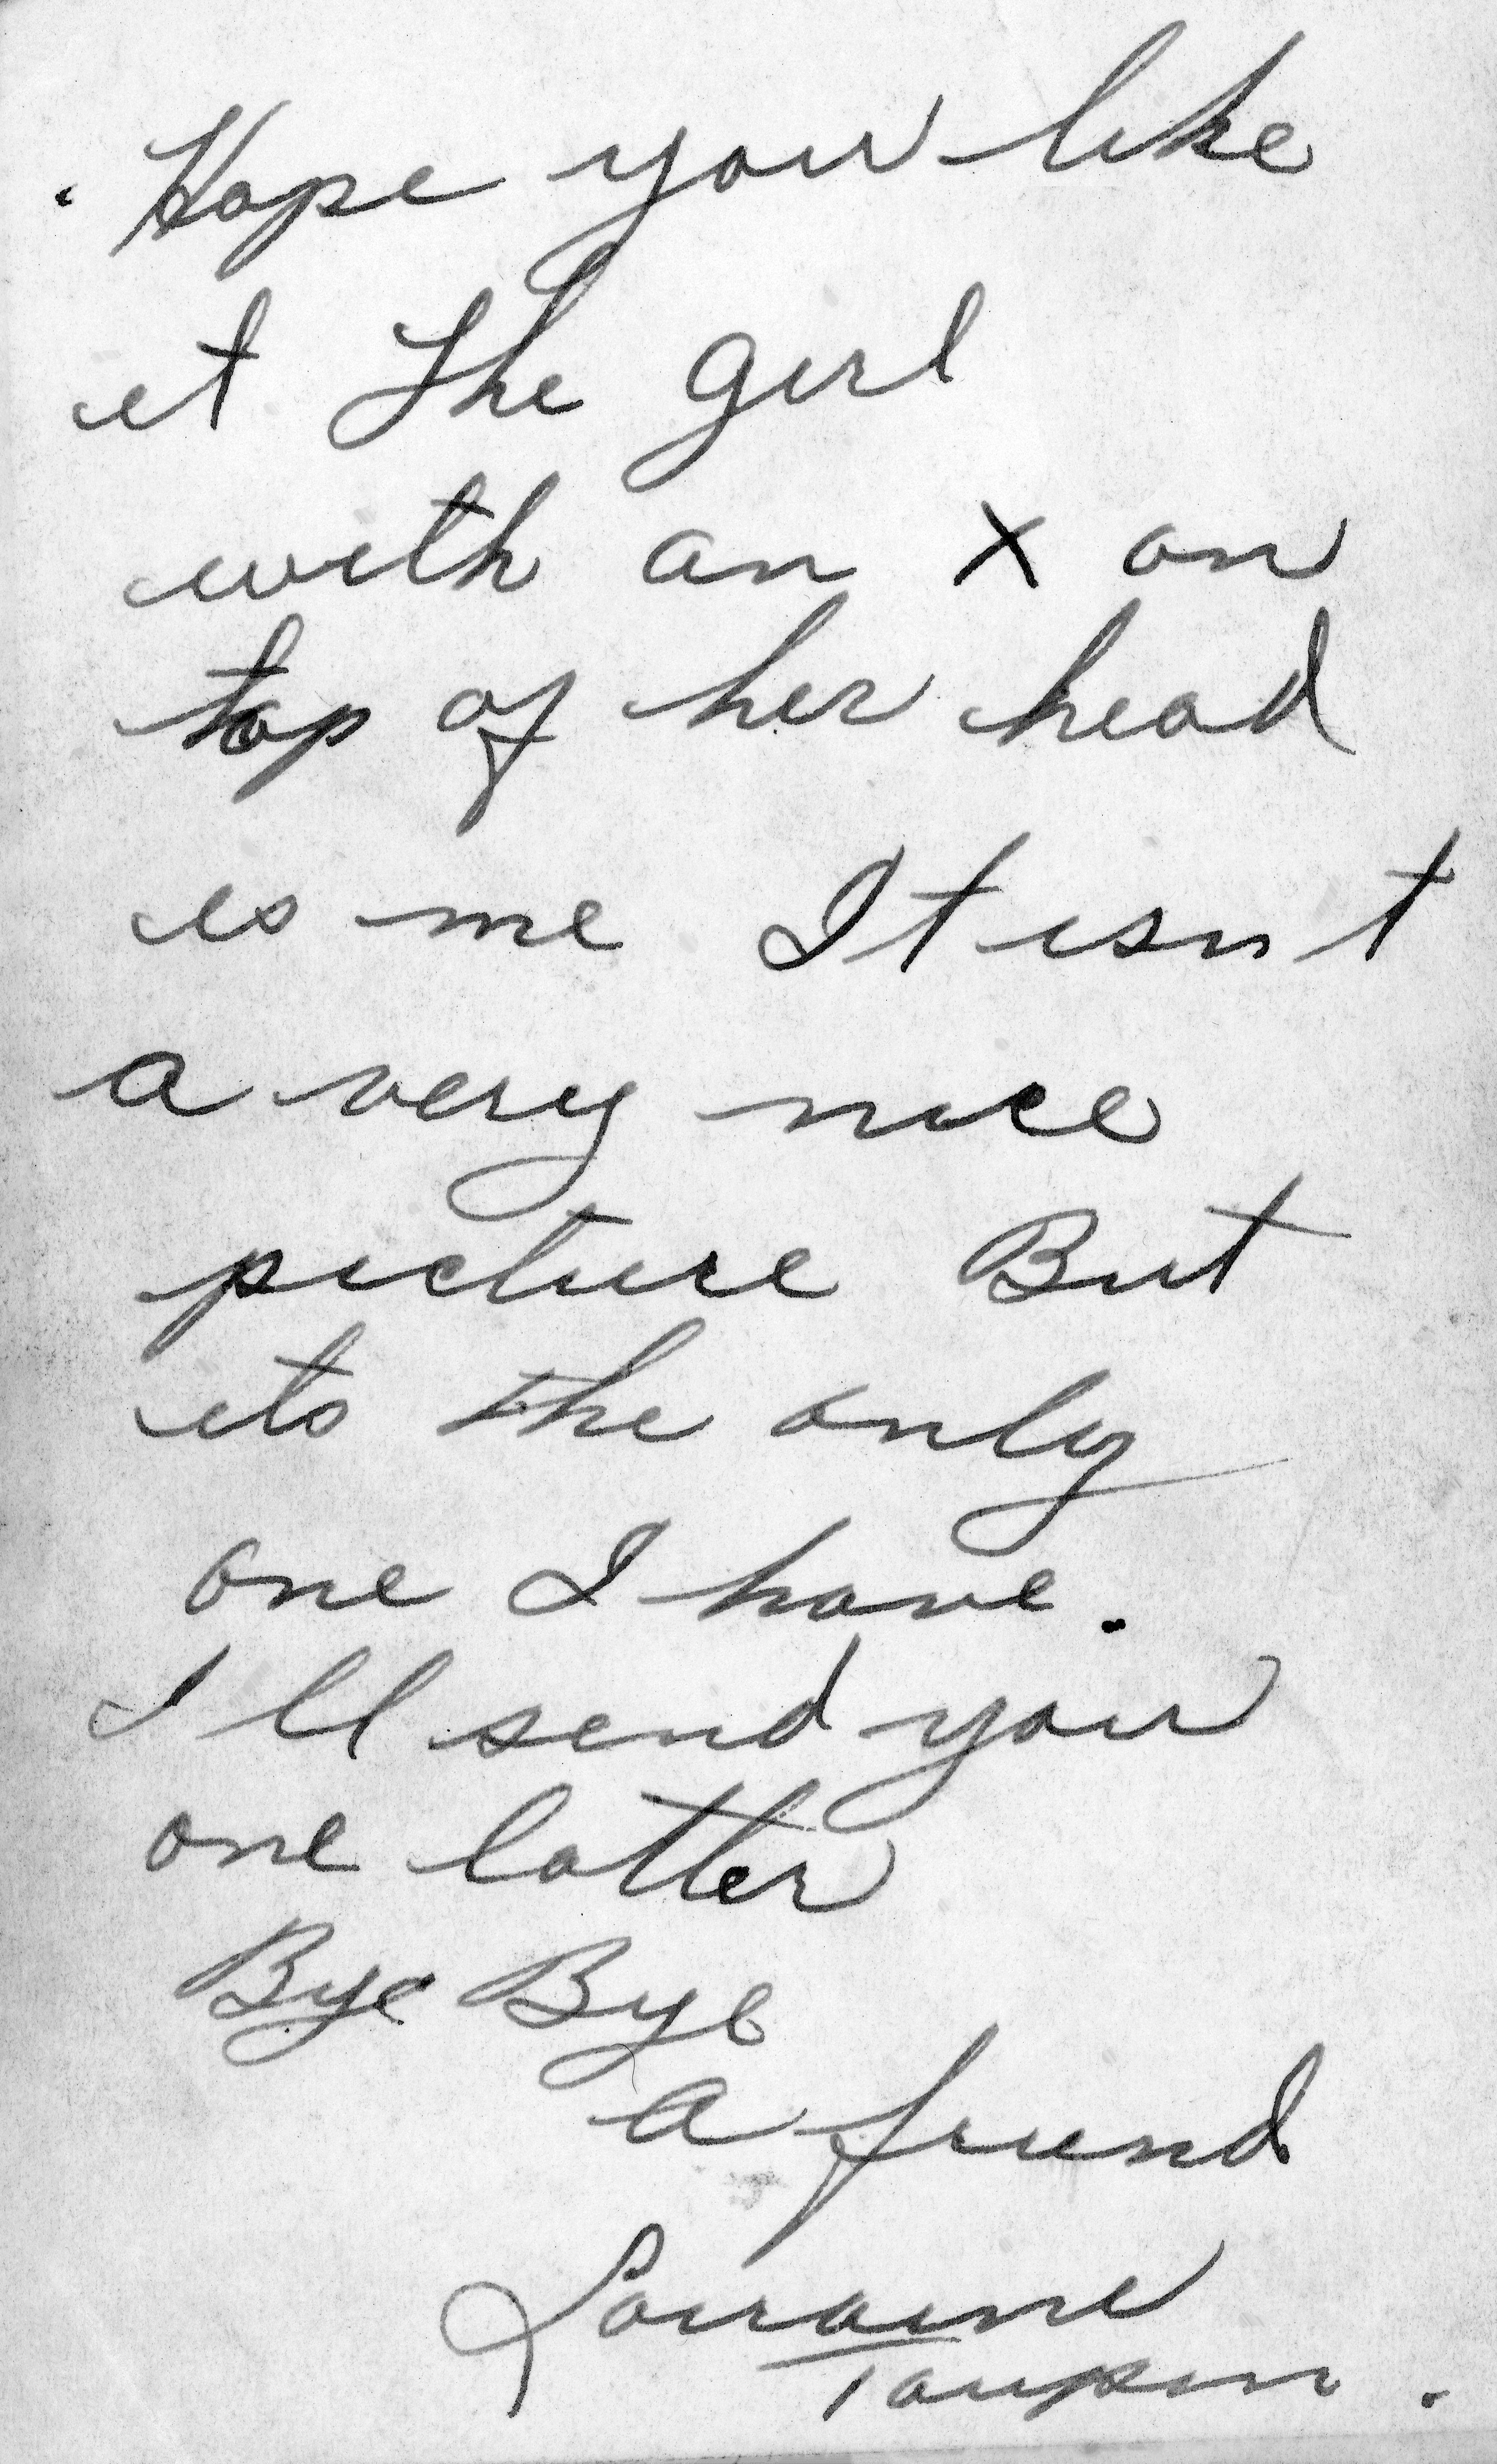 Hope you like
it The girl
with an X on
top of her head
is me It isn t
a very nice
picture But
its the only
one I have.
I ll send you
one latter
Bye Bye
a friend
Lorraine